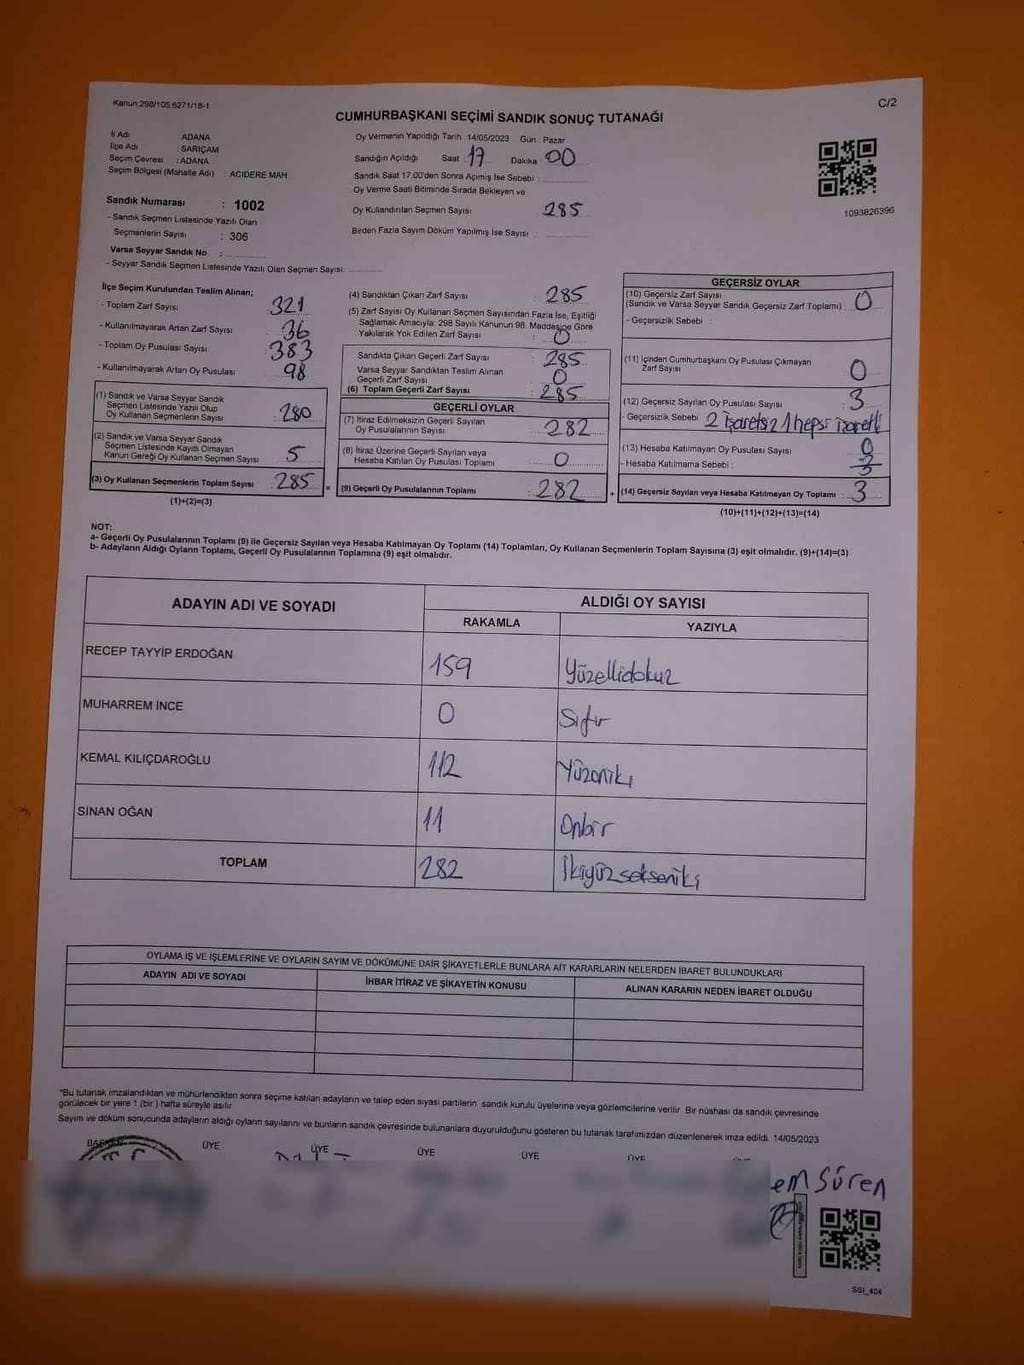 Kanun:298/105;6271/18-1
C/2
CUMHURBAŞKANI SEÇİMİ SANDIK SONUÇ TUTANAĞI
İl Adı ADANA
İlçe Adı : SARIÇAM
Seçim Çevresi : ADANA
Seçim Bölgesi (Mahalle Adı) : ACIDERE MAH
Oy Vermenin Yapıldığı Tarih 14/05/2023 Gün : Pazar
Sandığın Açıldığı Saat : 17 Dakika 00
Sandık Saat 17.00'den Sonra Açımış İse Sebebi :
Oy Verme Saati Bitiminde Sırada Bekleyen ve
Oy Kullandırılan Seçmen Sayısı 285
Birden Fazla Sayım Döküm Yapılmış İse Sayısı :
1093826396
Sandık Numarası : 1002
- Sandık Seçmen Listesinde Yazılı Olan
Seçmenlerin Sayısı : 306
Varsa Seyyar Sandık No :
- Seyyar Sandık Seçmen Listesinde Yazılı Olan Seçmen Sayısı:
İlçe Seçim Kurulundan Teslim Alınan;
- Toplam Zarf Sayısı : 321
- Kullanılmayarak Artan Zarf Sayısı : 36
- Toplam Oy Pusulası Sayısı : 383
- Kullanılmayarak Artan Oy Pusulası : 98
(1) Sandık ve Varsa Seyyar Sandık
Seçmen Listesinde Yazılı Olup
Oy Kullanan Seçmenlerin Sayısı : 280
(2) Sandık ve Varsa Seyyar Sandık
Seçmen Listesinde Kayıtlı Olmayan
Kanun Gereği Oy Kullanan Seçmen Sayısı : 5
(3) Oy Kullanan Seçmenlerin Toplam Sayısı : 285
(1)+(2)=(3)
(4) Sandıktan Çıkan Zarf Sayısı : 285
(5) Zarf Sayısı Oy Kullanan Seçmen Sayısından Fazla İse, Eşitliği
Sağlamak Amacıyla; 298 Sayılı Kanunun 98. Maddesine Göre
Yakılarak Yok Edilen Zarf Sayısı : 0
Sandıkta Çıkan Geçerli Zarf Sayısı : 285
Varsa Seyyar Sandıktan Teslim Alınan
Geçerli Zarf Sayısı : 0
(6) Toplam Geçerli Zarf Sayısı : 285
GEÇERLİ OYLAR
(7) İtiraz Edilmeksizin Geçerli Sayılan
Oy Pusulalarının Sayısı : 282
(8) İtiraz Üzerine Geçerli Sayılan veya
Hesaba Katılan Oy Pusulası Toplamı : 0
= (9) Geçerli Oy Pusulalarının Toplamı : 282
GEÇERSİZ OYLAR
(10) Geçersiz Zarf Sayısı
(Sandık ve Varsa Seyyar Sandık Geçersiz Zarf Toplamı) : 0
- Geçersizlik Sebebi :
(11) İçinden Cumhurbaşkanı Oy Pusulası Çıkmayan
Zarf Sayısı : 0
(12) Geçersiz Sayılan Oy Pusulası Sayısı : 3
- Geçersizlik Sebebi : 2 işaretsiz 1 hepsi işaretli
(13) Hesaba Katılmayan Oy Pusulası Sayısı : 0
- Hesaba Katılmama Sebebi :
+ (14) Geçersiz Sayılan veya Hesaba Katılmayan Oy Toplamı : 3
(10)+(11)+(12)+(13)=(14)
NOT:
a- Geçerli Oy Pusulalarının Toplamı (9) ile Geçersiz Sayılan veya Hesaba Katılmayan Oy Toplamı (14) Toplamları, Oy Kullanan Seçmenlerin Toplam Sayısına (3) eşit olmalıdır. (9)+(14)=(3)
b- Adayların Aldığı Oyların Toplamı, Geçerli Oy Pusulalarının Toplamına (9) eşit olmalıdır.
ADAYIN ADI VE SOYADI ALDIĞI OY SAYISI
RAKAMLA YAZIYLA
RECEP TAYYİP ERDOĞAN 159 Yüzellidokuz
MUHARREM İNCE 0 Sıfır
KEMAL KILIÇDAROĞLU 112 Yüzoniki
SİNAN OĞAN 11 Onbir
TOPLAM 282 İkiyüzsekseniki
OYLAMA İŞ VE İŞLEMLERİNE VE OYLARIN SAYIM VE DÖKÜMÜNE DAİR ŞİKAYETLERLE BUNLARA AİT KARARLARIN NELERDEN İBARET BULUNDUKLARI
ADAYIN ADI VE SOYADI İHBAR İTİRAZ VE ŞİKAYETİN KONUSU ALINAN KARARIN NEDEN İBARET OLDUĞU
"Bu tutanak imzalandıktan ve mühürlendikten sonra seçime katılan adayların ve talep eden siyasi partilerin sandık kurulu üyelerine veya gözlemcilerine verilir. Bir nüshası da sandık çevresinde
görülecek bir yere 1 (bir) hafta süreyle asılır.
Sayım ve döküm sonucunda adayların aldığı oyların sayılarını ve bunların sandık çevresinde bulunanlara duyurulduğunu gösteren bu tutanak tarafımızdan düzenlenerek imza edildi. 14/05/2023
BAŞKAN ÜYE ÜYE ÜYE ÜYE ÜYE
em Süren
SSI_404